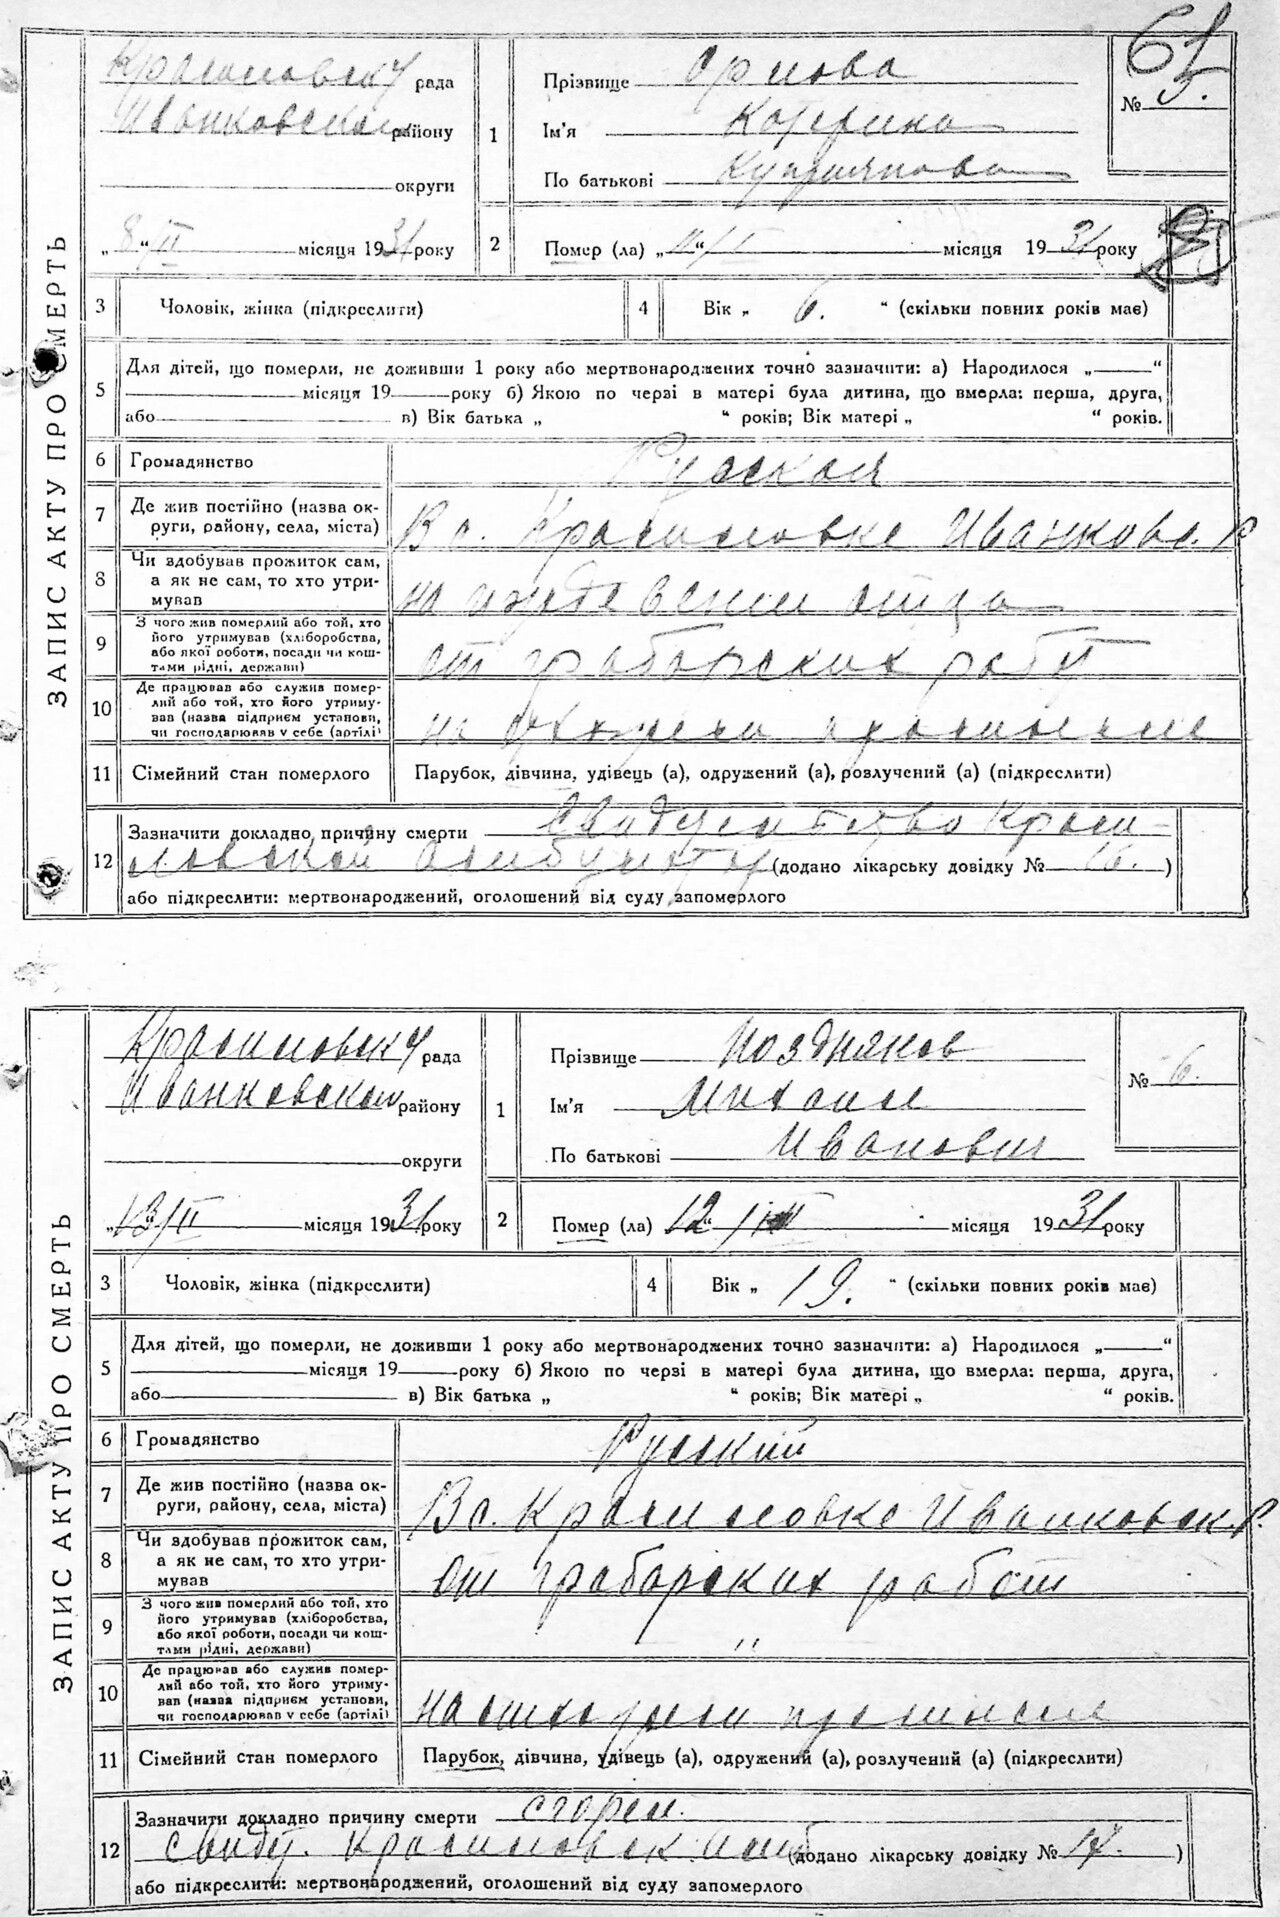 61
ЗАПИС АКТУ ПРО СМЕРТЬ
Красиловску рада
Иванковском району
округи
„ 8 “ II місяця 1931 року
1
Прізвище Орлова
Ім'я Катерина
По батькові Куприянова
№ 5.
2
Помер (ла) „ “ місяця 1931 року
3 Чоловік, жінка (підкреслити)
4 Вік „ 6. “ (скільки повних років має)
5 Для дітей, що померли, не доживши 1 року або мертвонароджених точно зазначити: а) Народилося „ “
місяця 19 року б) Якою по черзі в матері була дитина, що вмерла: перша, друга,
або в) Вік батька „ “ років; Вік матері „ “ років.
6 Громадянство Русская
7 Де жив постійно (назва округи, району, села, міста) В с. Красиловке Иванковс. р
8 Чи здобував прожиток сам, а як не сам, то хто утримував на иждевении отца
9 З чого жив померлий або той, хто його утримував (хліборобства, або якої роботи, посади чи коштами рідні, держави) от грабарских работ
10 Де працював або служив померлий або той, хто його утримував (назва підприєм установи, чи господарював у себе (артілі) на
11 Сімейний стан померлого Парубок, дівчина, удівець (а), одружений (а), розлучений (а) (підкреслити)
12 Зазначити докладно причину смерти Свидетельство Краси-
ловской амбулатор (додано лікарську довідку № 16. )
або підкреслити: мертвонароджений, оголошений від суду запомерлого
ЗАПИС АКТУ ПРО СМЕРТЬ
Красиловску рада
Иванковском району
округи
„ 13/II місяця 1931 року
1
Прізвище Поздняков
Ім'я Михаил
По батькові Иванович
№ 6.
2
Помер (ла) „ 12 “ / II місяця 1931 року
3 Чоловік, жінка (підкреслити)
4 Вік „ 19. “ (скільки повних років має)
5 Для дітей, що померли, не доживши 1 року або мертвонароджених точно зазначити: а) Народилося „ “
місяця 19 року б) Якою по черзі в матері була дитина, що вмерла: перша, друга,
або в) Вік батька „ “ років; Вік матері „ “ років.
6 Громадянство Русский
7 Де жив постійно (назва округи, району, села, міста) В с. Красиловке Иванковск. р.
8 Чи здобував прожиток сам, а як не сам, то хто утримував от грабарских работ
9 З чого жив померлий або той, хто його утримував (хліборобства, або якої роботи, посади чи коштами рідні, держави) "
10 Де працював або служив померлий або той, хто його утримував (назва підприєм установи, чи господарював у себе (артілі) на отхожем промысле
11 Сімейний стан померлого Парубок, дівчина, удівець (а), одружений (а), розлучений (а) (підкреслити)
12 Зазначити докладно причину смерти сгорел.
свидет. Красиловск амб (додано лікарську довідку № 17. )
або підкреслити: мертвонароджений, оголошений від суду запомерлого